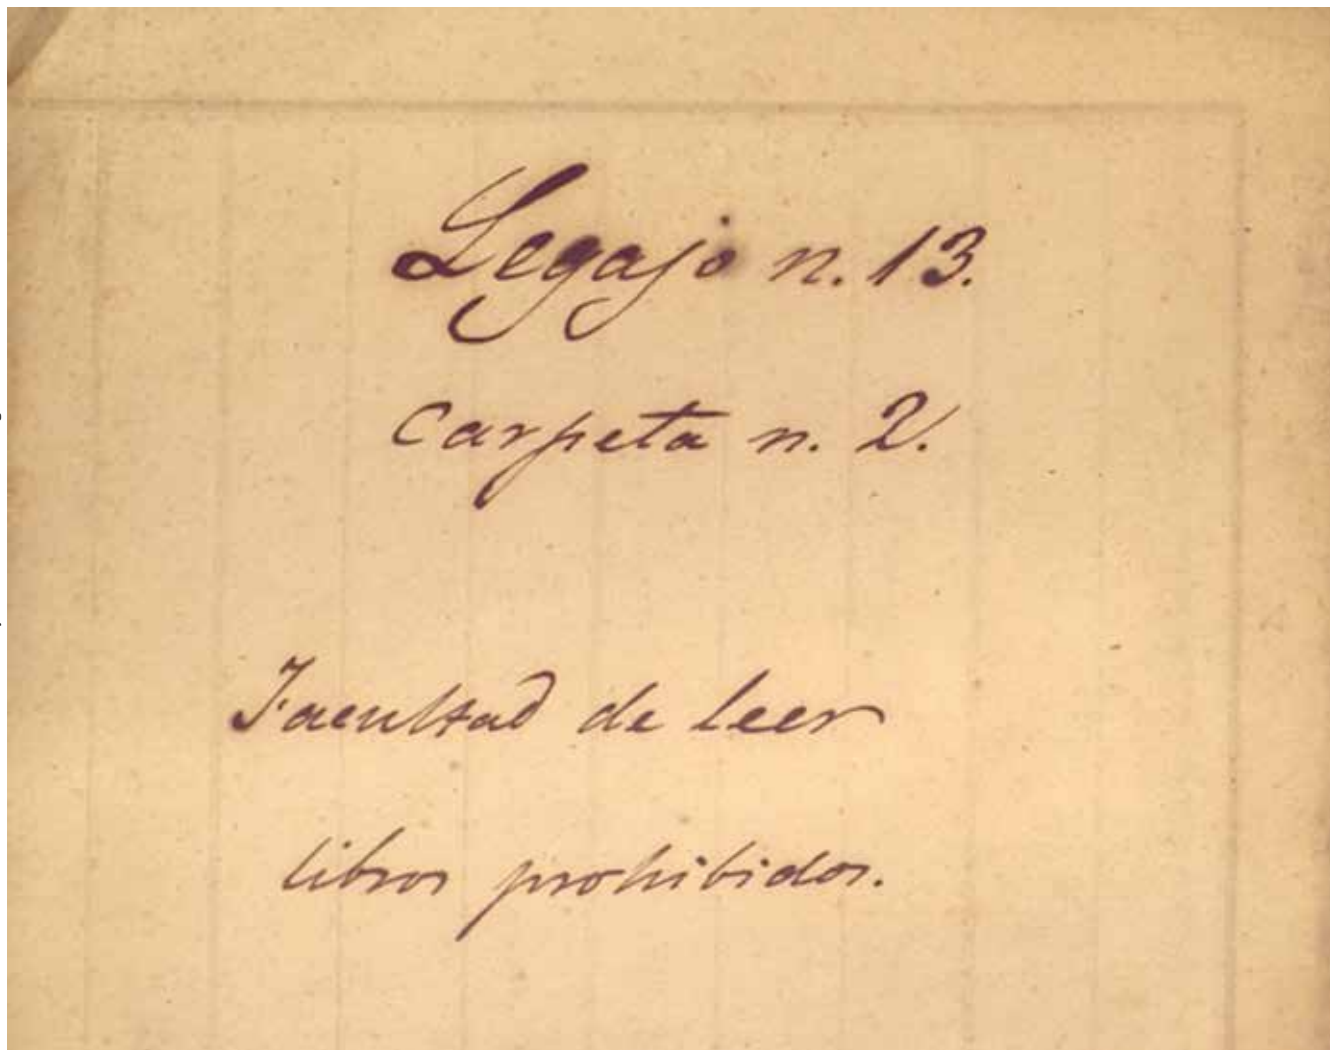 Legajo n. 13.
Carpeta n. 2.
Facultad de leer
libros prohibidos.